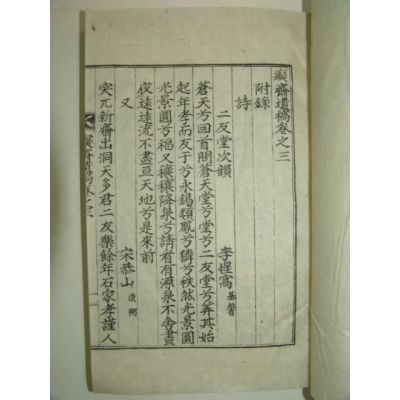 癡齋遺稿卷之三
附錄
詩
二友堂次韻
李惺窩
蒼天兮回首問蒼天堂兮堂兮二友堂兮弄其始
起年孝而友于兮永錫類鳳兮獜兮秩然光景圓
光景圓兮福又穰穰降泉兮請看有源泉不舍晝
夜遠遠流不盡亘天地兮是來前
又
宋恭山
突兀新齋出洞天多君二友樂餘年石家孝謹人